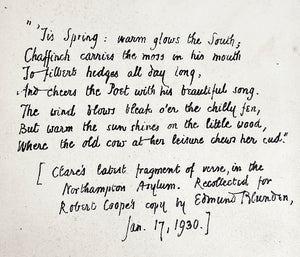 " 'Tis Spring: warm glows the South;
Chaffinch carries the moss in his mouth
To filbert hedges all day long,
And cheers the Poet with his beautiful song.
The wind blows bleak o'er the chilly fen,
But warm the sun shines on the little wood,
Where the old cow at her leisure chews her cud."
[ Clare's latest fragment of verse, in the
Northampton Asylum. Recollected for
Robert Cooper's copy by Edmund Blunden,
Jan. 17, 1930.]